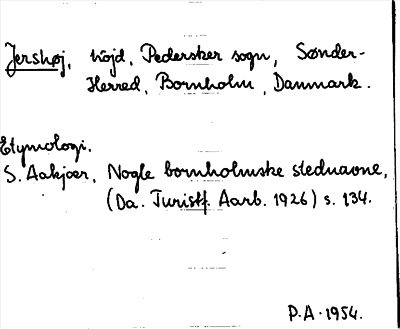 Jershøj, höjd, Pedersker sogn, Sønder-
Herred, Bornholm, Danmark.
Etymologi.
S. Aakjær, Nogle bornholmske stednavne,
(Da. Turistf. Aarb. 1926) s. 134.
P.A. 1954.